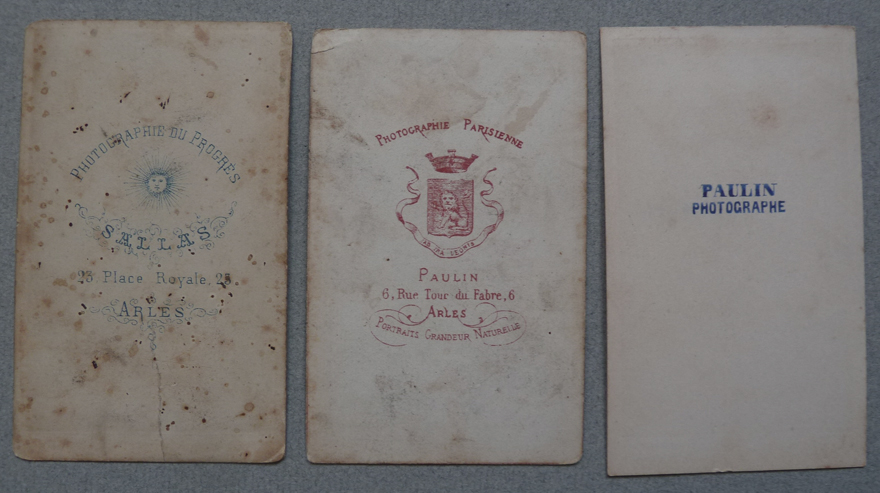 PHOTOGRAPHIE DU PROGRÈS
SALLAS
23 Place Royale, 23
ARLES
PHOTOGRAPHIE PARISIENNE
AB IRA LEONIS
PAULIN
6, Rue Tour du Fabre, 6
ARLES
PORTRAITS GRANDEUR NATURELLE
PAULIN
PHOTOGRAPHE